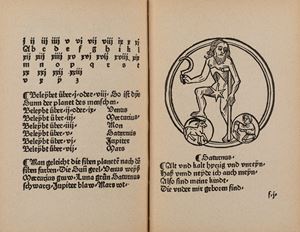 j ii iij iiij v vj vij viij ix x xj
A b c d e f g h i k l
xij xiij xiiij xv xvj xvij xviij xix
m n o p q r s t
xx xxj xxij xxiij
v x y z
Beleybt über j oder viij So ist die
Sunn der planet des menschen
Beleybt über ij oder ix Venus
Beleybt über iij Mercurius
Beleybt über iiij Mon
Beleybt über v Saturnus
Beleybt über vj Jupiter
Beleybt über vij Mars
Man geleicht die siben planeten nach den
siben farben Die Sun gel Venus
Mercurius Luna grün Saturnus
schwarz Jupiter blaw Mars rot
Saturnus
Alt und kalt und
und neydt ich auch meyn
Also sind meine kinde
Die under mir geboren sind